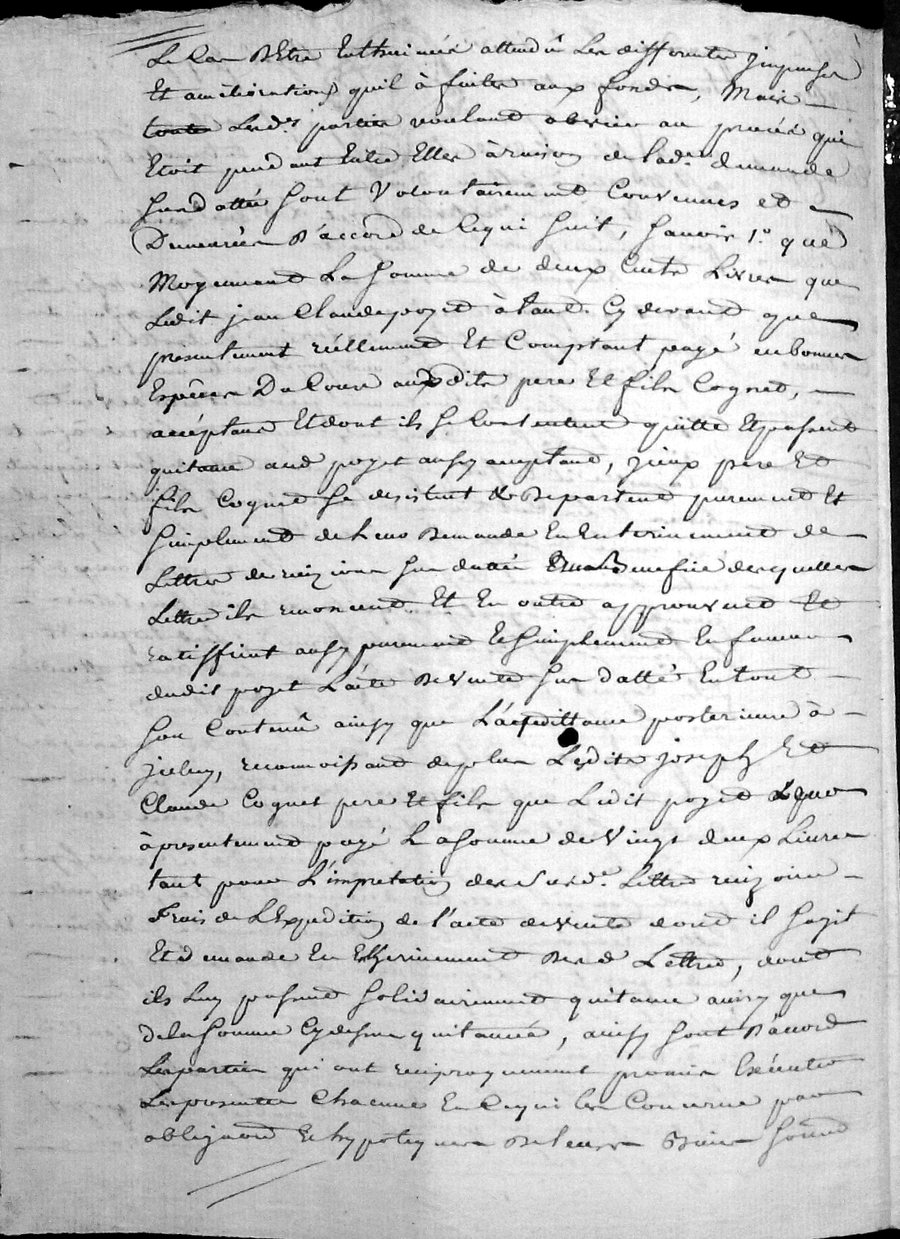 Le Cas D'Etre Entherinées attendû Les differentes impenses
Et améliorations quil à faites aux fonds, Mais
Lesd.s parties voulant obvier au procès qui
Etoit pendant Entre Elles à raison de lad.e demande
Susdattée sont Volontairement Convenues et
Demeurées D'accord de Ce qui suit, sçavoir 1.° que
Moyennant La somme de deux Cents Livres que
Ledit jean Claude poyet à tant Cy devant que
presentement réellement Et Comptant payé en bonnes
Espêces Du Cours auxdits pere Et fils Coignet,
acceptans Et dont ils se Contentent quitte Et passent
quitance aud poyet aussy acceptant, iceux pere Et
fils Coignet se desistent & Departent purement Et
simplement de Leur Demande En Enterinement de
Lettres de recizion sus dattée au Benefice desquelles
Lettres ils renoncent Et En outre approuvent Et
ratiffient aussy purement Et simplement En faveur
dudit poyet L'acte De Vente sus datté En tout
son Contenû ainsy que L'acquittance posterieure à
jceluy, reconnoissant de plus Lesdits joseph Et
Claude Cognet pere Et fils que Ledit poyet Leur a
à presentement payé La somme de Vingt deux Livres
tant pour L'impretation des Susd.s Lettres recizoires
Frais de L'Expedition de l'acte de vente dont il s'agit
Et demande En Entherinement Desd Lettres, dont
ils Luy passent solidairement quitance ainsy que
de la somme Cy dessus quitancée, ainsy sont D'accord
Les parties qui ont reciproquement promis Executer
Les presentes Chacune En Ce qui les Concerne par
obligation Et hypoteque De Leurs Biens soumd